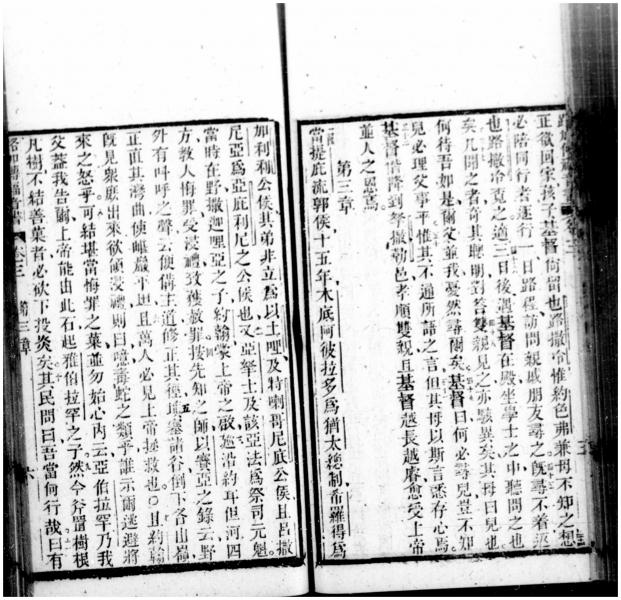 正欲回家孩子基督尚留也路撒冷惟約色弗兼母不知之想
必陪同行者遂行一日路程訪問親戚朋友尋之既尋不着返
也路撒冷覓之適三日後遇基督在殿坐學士之中聽問之也
矣凡聞之者奇其聰明對答雙親見之亦駭異矣其母曰兒也
何待吾如是爾父並我憂然尋爾矣基督曰何必尋兒豈不知
兒必理父事乎惟其不通所語之言但其母以斯言悉存心焉
基督偕降到努撒勒邑孝順雙親且基督越長越睿愈受上帝
並人之恩焉
第三章
當提庇流郭侯十五年本底阿彼拉多為猶太總制希羅得為
加利利公侯其弟非立為以土哩及特喇哥尼底公侯且呂撒
尼亞為亞庇利尼之公侯也又亞拏士及該亞法為祭司元魁
當時在野撒迦哩亞之子約翰蒙上帝之啟遊沿約耳但河四
方教人悔罪受浸禮致獲赦罪按先知之師以賽亞之錄云野
外有呼呼之聲云便備主道修正其徑
正直其灣曲使崎嶇平坦且萬人必見上帝拯救也○且約翰
既見眾庶出來欲領浸禮則曰噫毒蛇之類乎誰示爾逃避將
來之怒乎可結堪當悔罪之菓並勿始心內云亞伯拉罕乃我
父蓋我告爾上帝能由此石起雅伯拉罕之子然今斧置樹根
凡樹不結善菓者必砍下投炎矣其民問曰吾當何行哉曰有
卷三 第三章 六